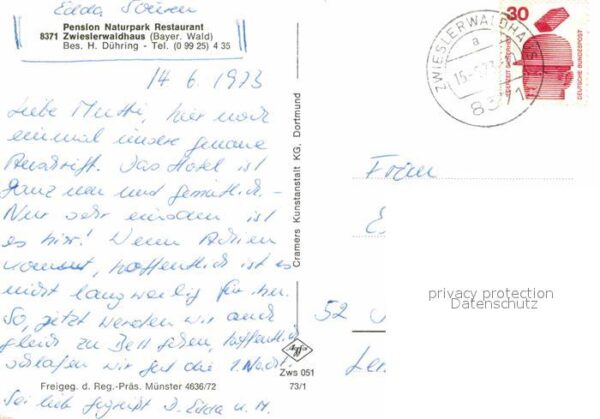 Edda
Pension Naturpark Restaurant
8371 Zwieslerwaldhaus (Bayer. Wald)
Bes. H. Dühring - Tel. (0 99 25) 4 35
14 6. 1973
Liebe Mutti, hier noch
einmal unsere genaue
Anschrift. Das Hotel ist
ganz neu und gemütlich. -
Nur sehr einsam ist
es hier! Wenn Adrien
kommt, hoffentlich ist es
nicht langweilig für ihn.
So, jetzt werden wir auch
gleich zu Bett gehen hoffentlich
schlafen wir gut die 1. Nacht.
Sei lieb gegrüßt D. Edda u. M.
Freigeg. d. Reg.-Präs. Münster 4636/72
Cramers Kunstanstalt KG. Dortmund
Zws 051
73/1
ZWIESLERWALDHAUS
a
8371
30
JEDERZEIT SICHERHEIT
DEUTSCHE BUNDESPOST
E
52
privacy protection
Datenschutz